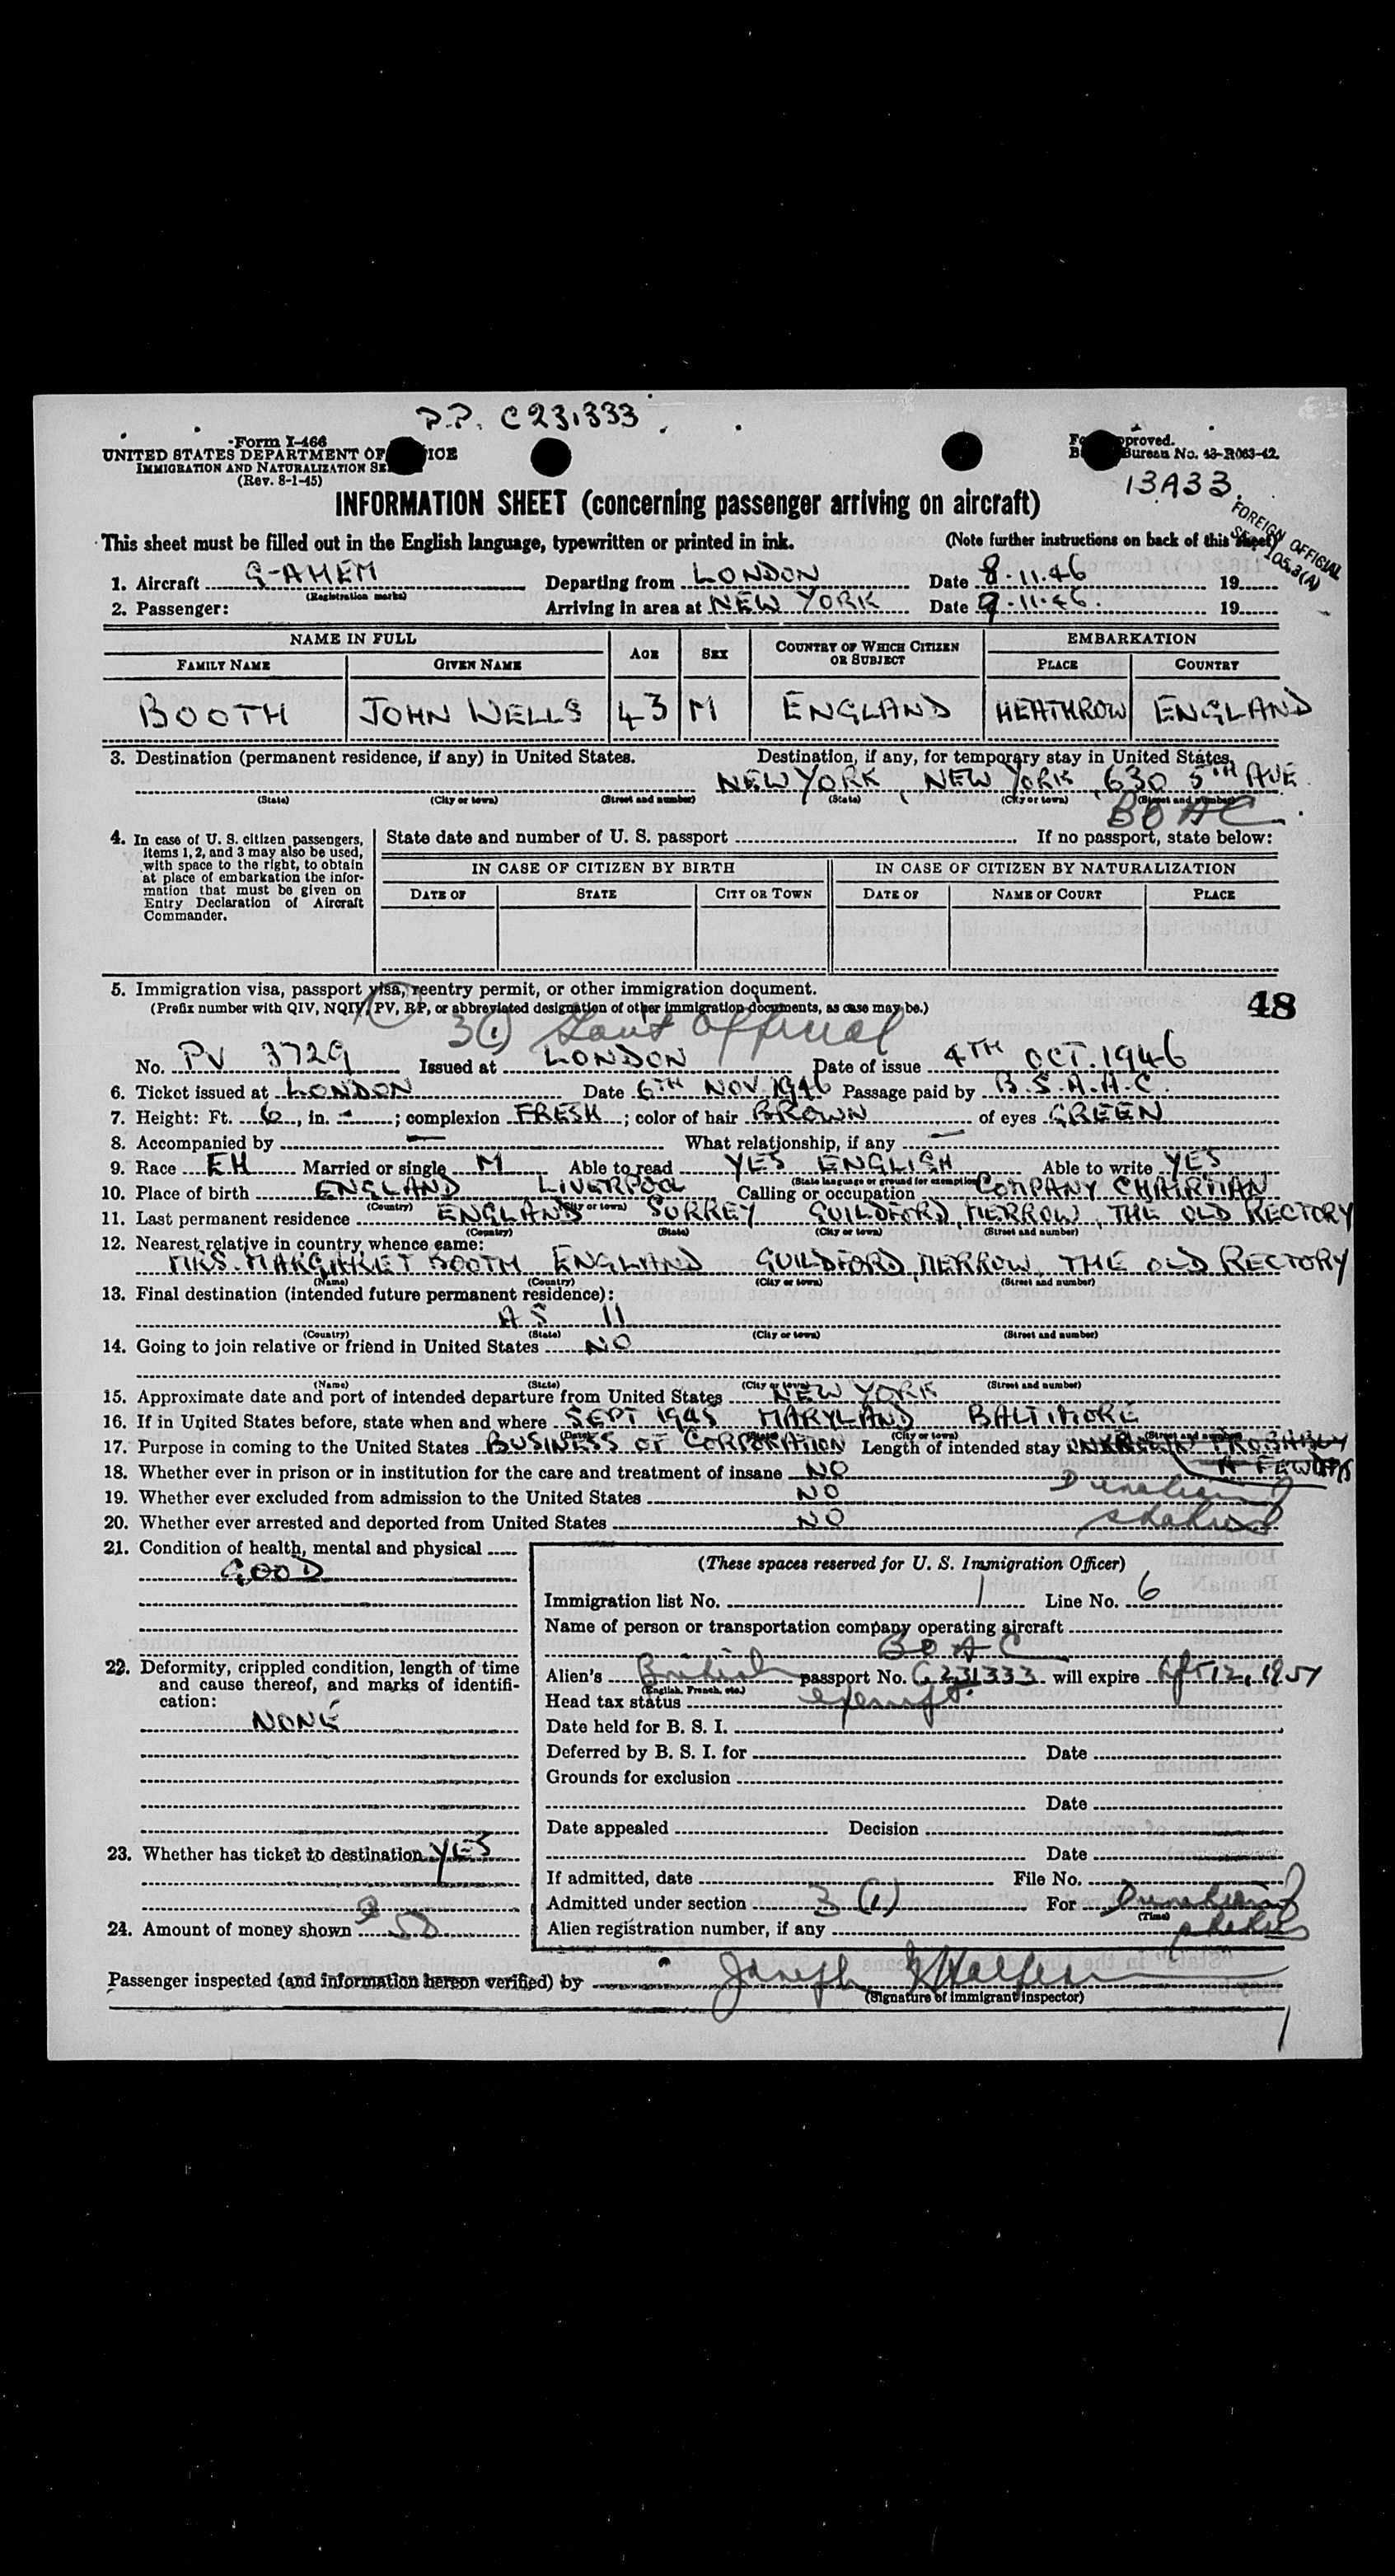 P.P. C231333.
Form I-466
UNITED STATES DEPARTMENT OF ICE
IMMIGRATION AND NATURALIZATION SE
(Rev. 8-1-45)
Fo pproved.
B Bureau No. 43-R063-42.
13A33.
INFORMATION SHEET (concerning passenger arriving on aircraft)
FOREIGN OFFICIAL
105.3(A)
This sheet must be filled out in the English language, typewritten or printed in ink. (Note further instructions on back of this sheet)
1. Aircraft G-AHEM Departing from LONDON Date 8.11.46 19
(Registration marks)
2. Passenger: Arriving in area at NEW YORK Date 9.11.46. 19
NAME IN FULL AGE SEX COUNTRY OF WHICH CITIZEN OR SUBJECT EMBARKATION
FAMILY NAME GIVEN NAME PLACE COUNTRY
BOOTH JOHN WELLS 43 M ENGLAND HEATHROW ENGLAND
3. Destination (permanent residence, if any) in United States. Destination, if any, for temporary stay in United States.
NEW YORK, NEW YORK, 630 5TH AVE.
(State) (City or town) (Street and number) (State) (City or town) (Street and number)
BOAC.
4. In case of U. S. citizen passengers, items 1, 2, and 3 may also be used, with space to the right, to obtain at place of embarkation the information that must be given on Entry Declaration of Aircraft Commander.
State date and number of U. S. passport If no passport, state below:
IN CASE OF CITIZEN BY BIRTH IN CASE OF CITIZEN BY NATURALIZATION
DATE OF STATE CITY OR TOWN DATE OF NAME OF COURT PLACE
5. Immigration visa, passport visa, reentry permit, or other immigration document.
(Prefix number with QIV, NQIV, PV, RP, or abbreviated designation of other immigration documents, as case may be.)
48
3(1) Govt Official
No. PV 3729 Issued at LONDON Date of issue 4TH OCT. 1946
6. Ticket issued at LONDON Date 6TH NOV. 1946 Passage paid by B.S.A.A.C.
7. Height: Ft. 6, in. -; complexion FRESH; color of hair BROWN of eyes GREEN
8. Accompanied by — What relationship, if any —
9. Race EH Married or single M Able to read YES ENGLISH Able to write YES
(State language or ground for exemption)
10. Place of birth ENGLAND LIVERPOOL Calling or occupation COMPANY CHAIRMAN
(Country) (City or town)
11. Last permanent residence ENGLAND SURREY GUILDFORD, MERROW, THE OLD RECTORY
(Country) (State) (City or town) (Street and number)
12. Nearest relative in country whence came:
MRS. MARGARET BOOTH ENGLAND GUILDFORD, MERROW, THE OLD RECTORY
(Name) (Country) (City or town) (Street and number)
13. Final destination (intended future permanent residence):
AS 11
(Country) (State) (City or town) (Street and number)
14. Going to join relative or friend in United States NO
(Name) (State) (City or town) (Street and number)
15. Approximate date and port of intended departure from United States NEW YORK
16. If in United States before, state when and where SEPT 1945 MARYLAND BALTIMORE
(Date) (State) (City or town) (Street and number)
17. Purpose in coming to the United States BUSINESS OF CORPORATION Length of intended stay PROBABLY
A FEW DAYS
18. Whether ever in prison or in institution for the care and treatment of insane NO
19. Whether ever excluded from admission to the United States NO
Duration
20. Whether ever arrested and deported from United States NO
status
21. Condition of health, mental and physical
GOOD
(These spaces reserved for U. S. Immigration Officer)
Immigration list No. 1 Line No. 6
Name of person or transportation company operating aircraft
BOAC
22. Deformity, crippled condition, length of time and cause thereof, and marks of identification:
NONE
Alien's British passport No. C231333 will expire 12, 1951
(English, French, etc.)
Head tax status exempt.
Date held for B. S. I.
Deferred by B. S. I. for Date
Grounds for exclusion
Date
Date appealed Decision
23. Whether has ticket to destination YES
Date
If admitted, date File No.
Admitted under section 3 (1) For Duration
(Time)
status
24. Amount of money shown 50
Alien registration number, if any
Passenger inspected (and information hereon verified) by Joseph
(Signature of immigrant inspector)